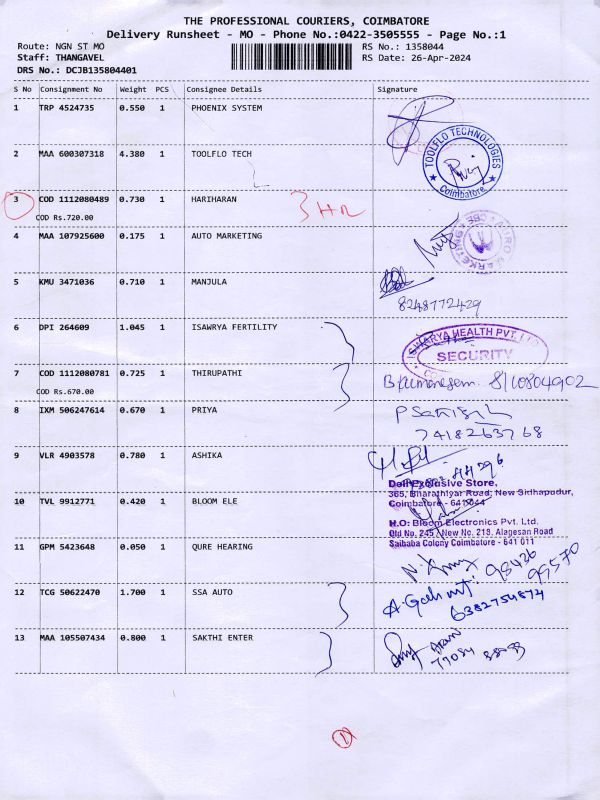 THE PROFESSIONAL COURIERS, COIMBATORE
Delivery Runsheet - MO - Phone No.:0422-3505555 - Page No.:1
Route: NGN ST MO
RS No.: 1358044
Staff: THANGAVEL
RS Date: 26-Apr-2024
DRS No.: DCJB135804401
S No Consignment No Weight PCS Consignee Details Signature
1 TRP 4524735 0.550 1 PHOENIX SYSTEM
2 MAA 600307318 4.380 1 TOOLFLO TECH
TOOLFLO TECHNOLOGIES
Coimbatore
3 COD 1112080489 0.730 1 HARIHARAN
COD Rs.720.00
4 MAA 107925600 0.175 1 AUTO MARKETING
5 KMU 3471036 0.710 1 MANJULA
8248772429
6 DPI 264609 1.045 1 ISAWRYA FERTILITY
HEALTH PVT. LTD
SECURITY
7 COD 1112080781 0.725 1 THIRUPATHI
COD Rs.670.00
8 IXM 506247614 0.670 1 PRIYA
7418263768
9 VLR 4903578 0.780 1 ASHIKA
Dell Exclusive Store,
365, Bharathiyar Road, New Sidhapudur,
Coimbatore - 641 044
10 TVL 9912771 0.420 1 BLOOM ELE
H.O: Bloom Electronics Pvt. Ltd.
Old No. 245, New No. 218, Alagesan Road
Saibaba Colony Coimbatore - 641 011
11 GPM 5423648 0.050 1 QURE HEARING
12 TCG 50622470 1.700 1 SSA AUTO
6382754874
13 MAA 105507434 0.800 1 SAKTHI ENTER
1